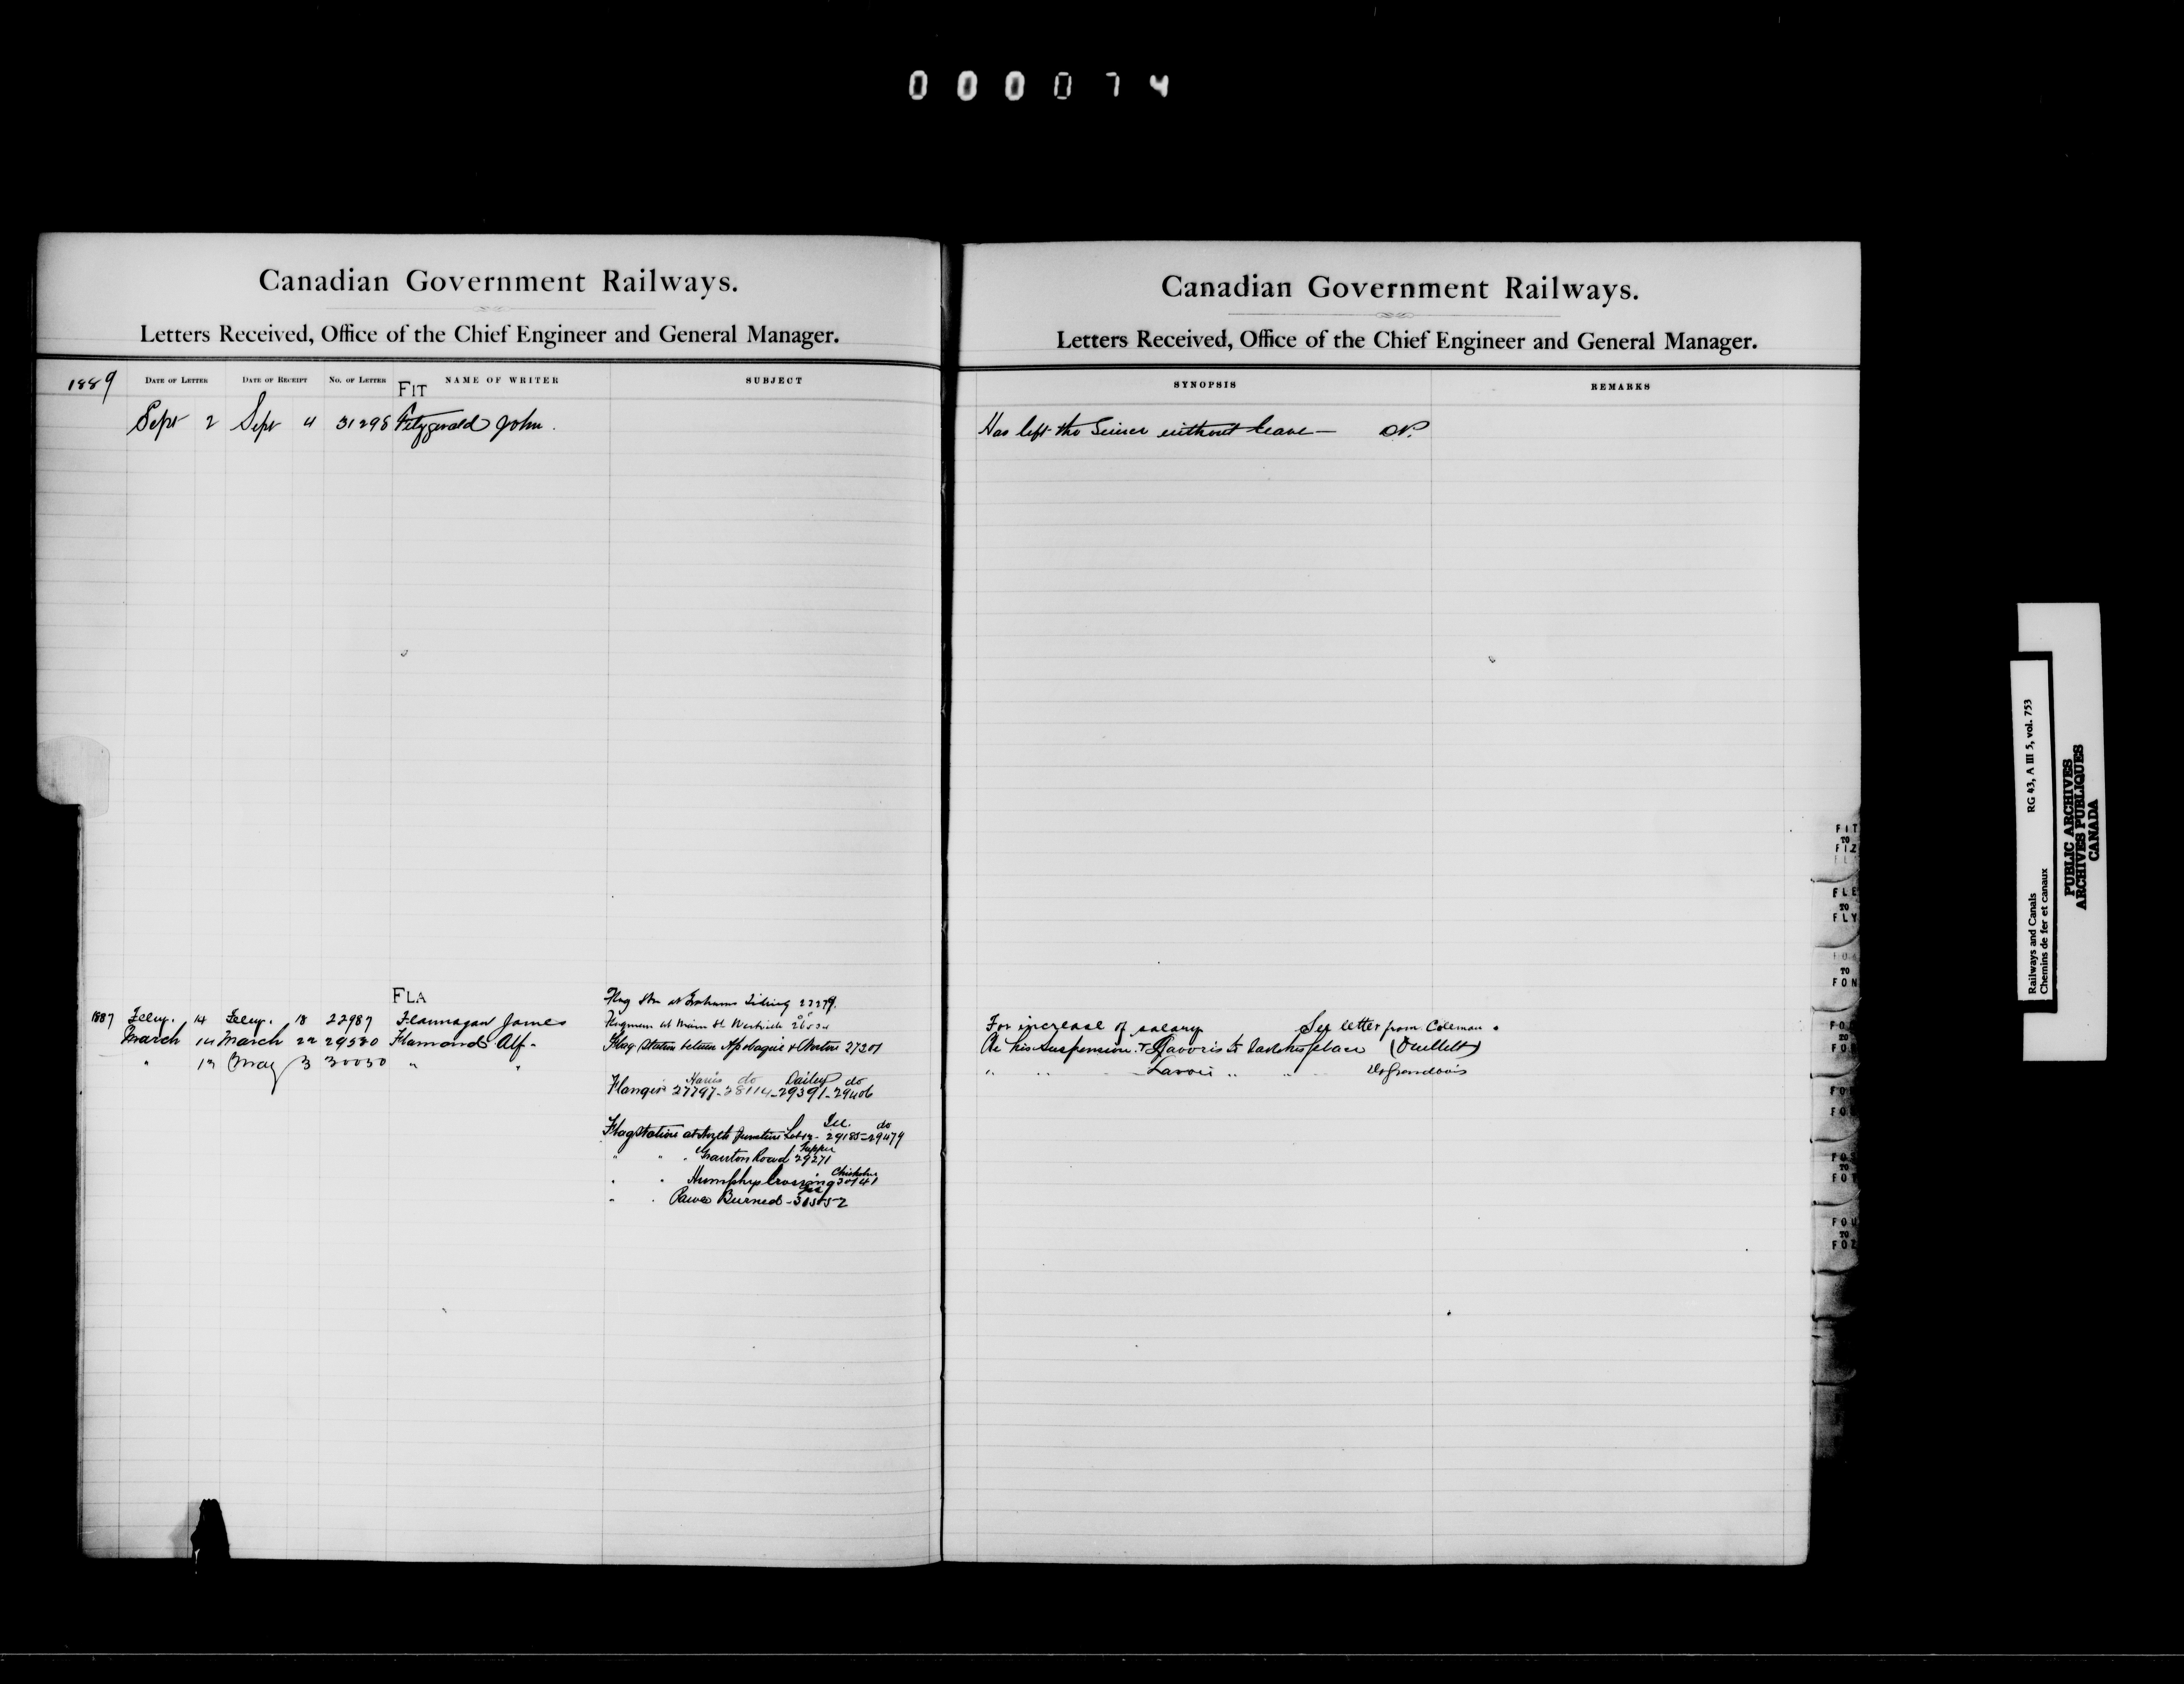 000074
Canadian Government Railways.
Letters Received, Office of the Chief Engineer and General Manager.
1889 DATE OF LETTER DATE OF RECEIPT No. OF LETTER NAME OF WRITER SUBJECT
FIT
Sept 2 Sept 4 31298 Fitzgerald John.
FLA
Flag Stn at Grahams Siding 22279.
1887 Feby. 14 Feby. 18 22987 Flannagan James
Flagman at Main St
March 14 March 22 29530 Flamond Alf.
Flag Station between Apohaqui & Norton 27201
" 13 May 3 30030 " "
Harris do Dailey do
Flangers 27797-28114-29391-29406
do
Flag Station at Junction 29185-29479
Tupper
" " " Road 29271
Chisholm
" " Humphrys Crossing 30141
" " Burned - 30552
Canadian Government Railways.
Letters Received, Office of the Chief Engineer and General Manager.
SYNOPSIS REMARKS
Has left the Service without leave -
For increase of salary See letter from Coleman.
Re his suspension & to take his place (Ouellett)
" " " Lavoie " " " Desgrandbois
FIT TO FIZ
FLE TO FLY
TO FON
FOU TO FOZ
Railways and Canals RG 43, A III 5, vol. 753
Chemins de fer et canaux
PUBLIC ARCHIVES
ARCHIVES PUBLIQUES
CANADA